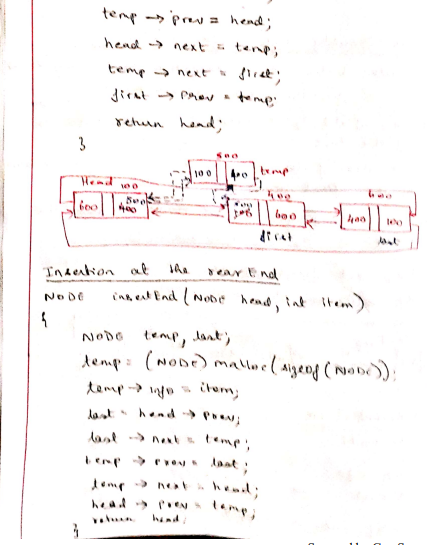 temp → prev = head;
head → next = temp;
temp → next = first;
first → prev = temp;
return head;
}
500
100 400 temp
Head 100
600 400 500
400
500 600
first
600
400 100
last
Insertion at the rear End
NODE insertEnd(NODE head, int item)
{
NODE temp, last;
temp = (NODE) malloc(sizeof(NODE));
temp → info = item;
last = head → prev;
last → next = temp;
temp → prev = last;
temp → next = head;
head → prev = temp;
return head;
}